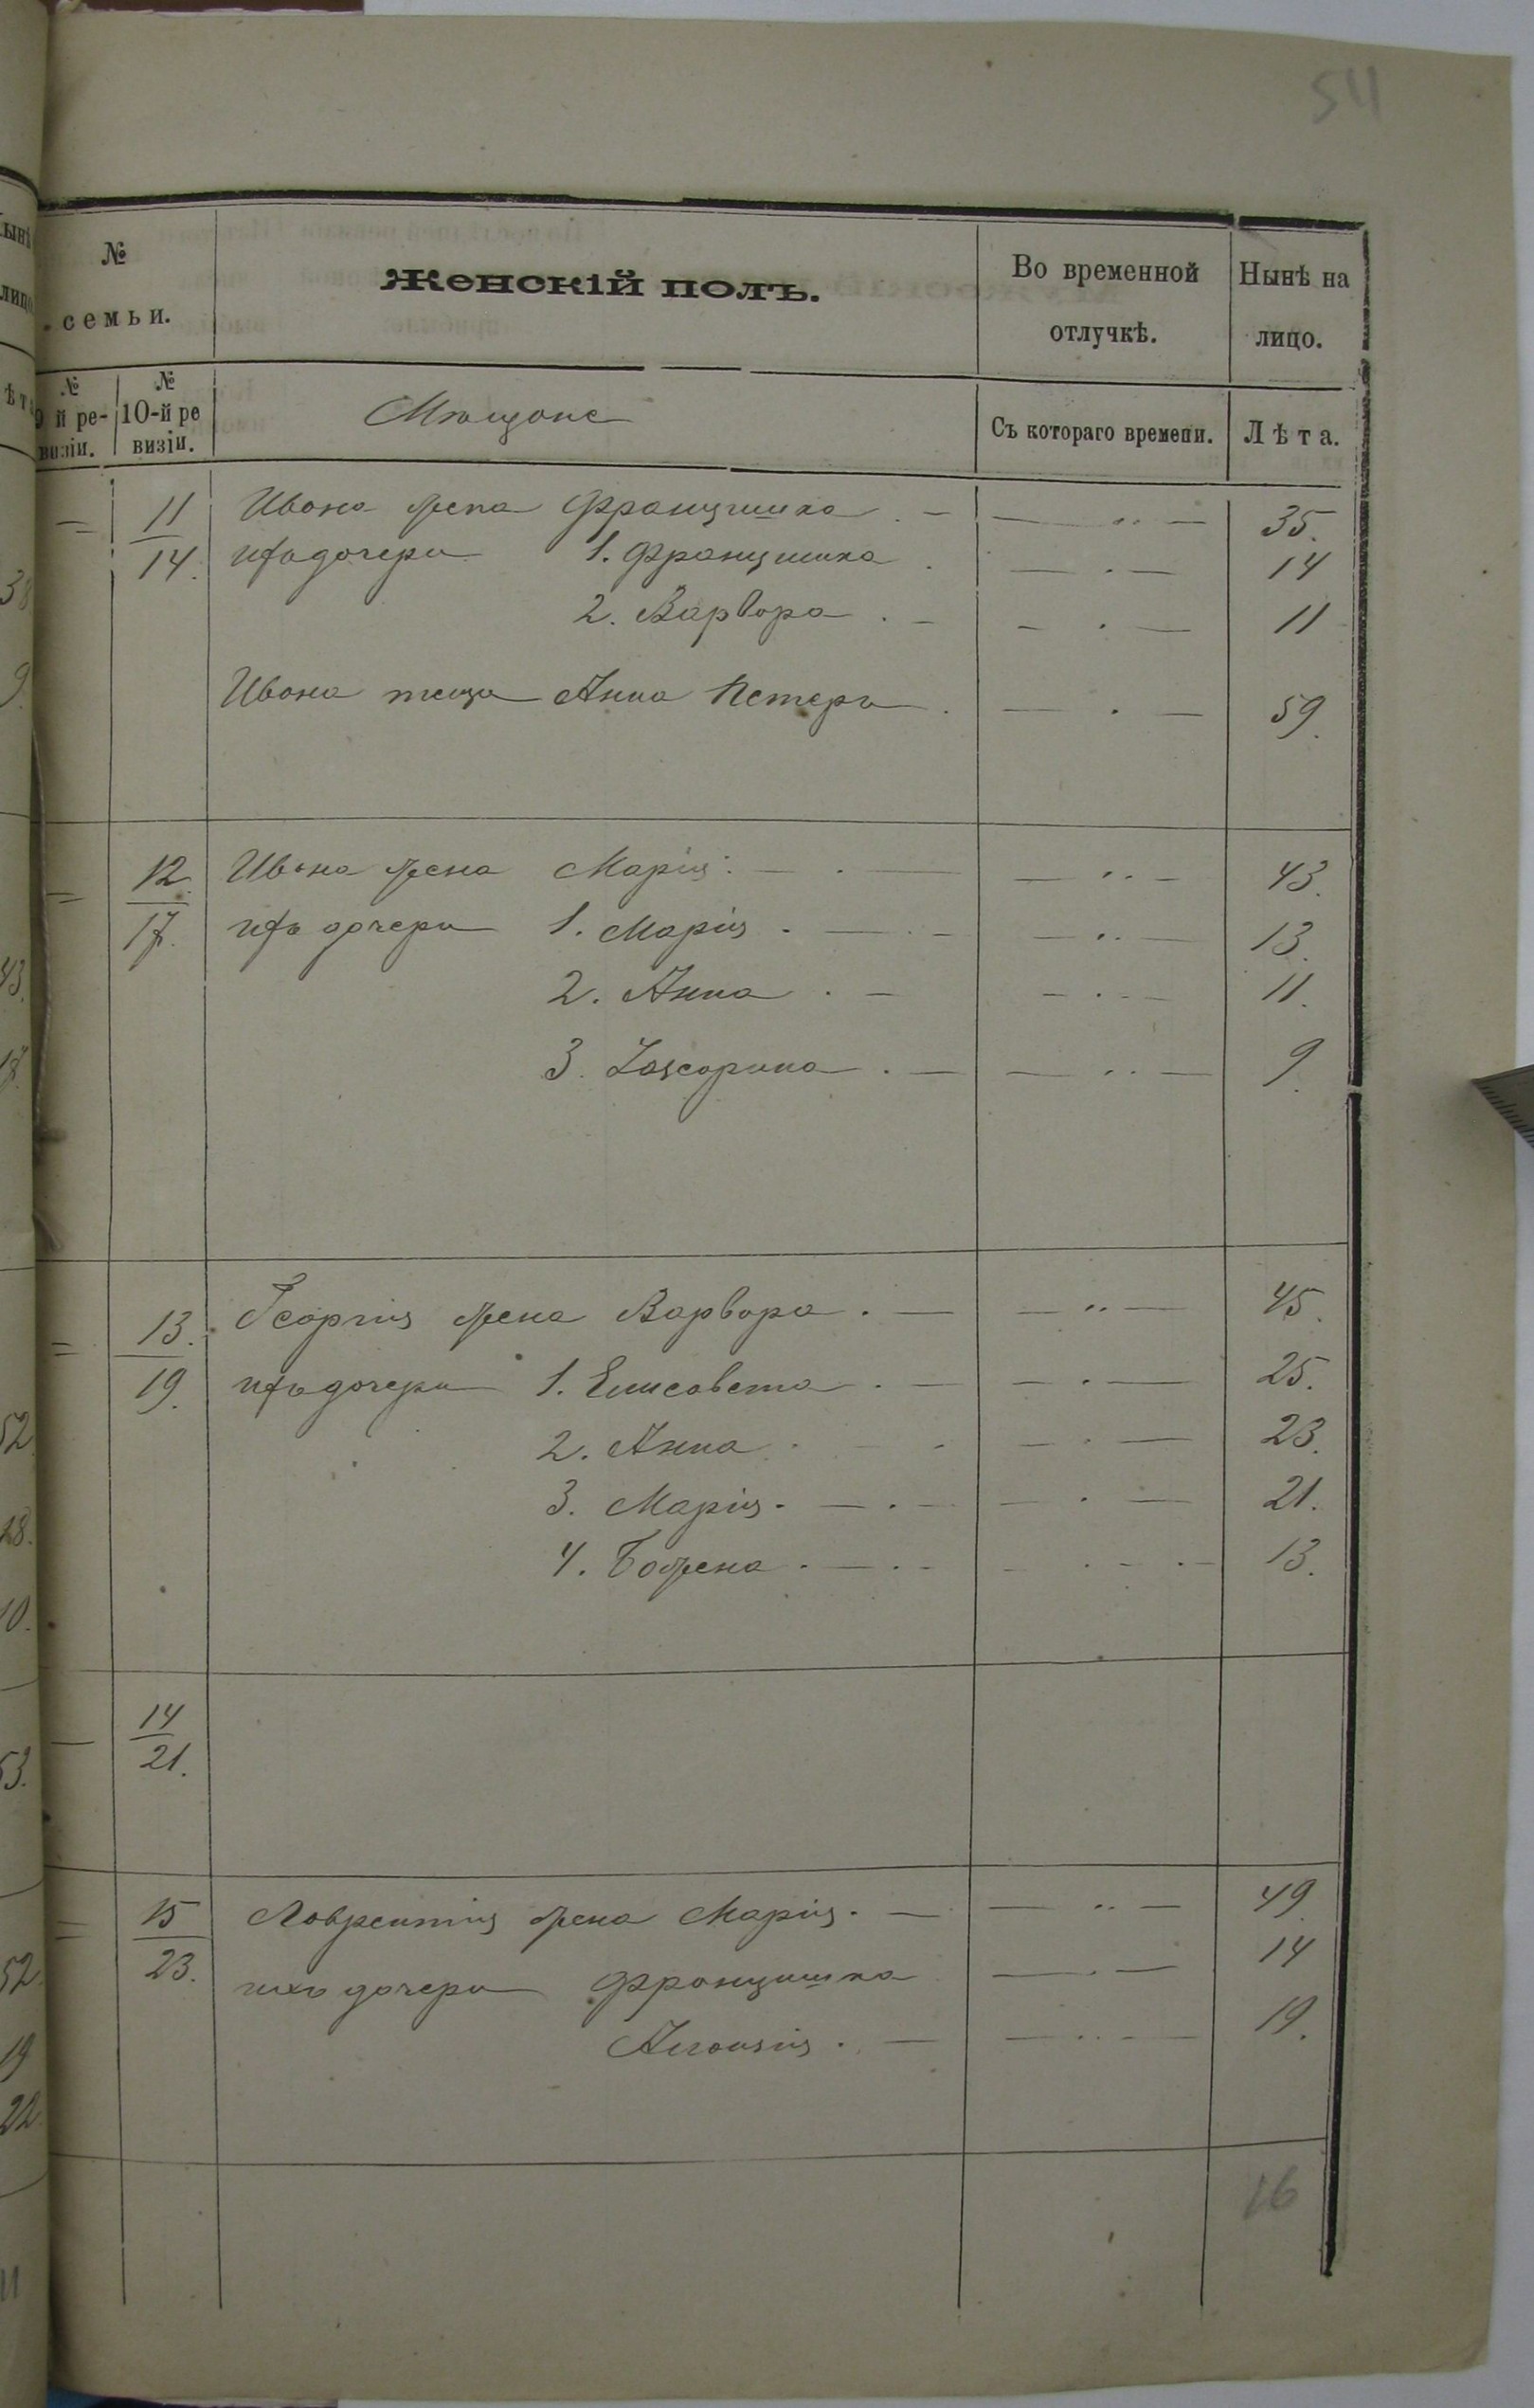 54
№
семьи.
Женскій полъ.
Во временной
отлучкѣ.
Нынѣ на
лицо.
№
9 й ре-
визіи.
№
10-й ре
визіи.
Мѣщане
Съ котораго времени.
Лѣта.
11 Ивана жена Францишка . — — " — 35.
14. ихъ дочери 1. Францишка . — . — 14
2. Варвара . — — . — 11
Ивана теща Анна Петера . — . — 59.
12. Ивана жена Марія . — . — — " — 43.
17. ихъ дочери 1. Марія . — . — — " — 13.
2. Анна . — — . — 11.
3. . — — " — 9.
13. Георгія жена Варвара . — — " — 45.
19. ихъ дочери 1. Елисавета . — — . — 25.
2. Анна . — — . — 23.
3. Марія . — . — — . — 21.
4. Божена . — . — — . — . — 13.
14
21.
15 Лаврентія жена Марія . — — " — 49.
23. ихъ дочери Францишка — . — 14
. — — " — 19.
16